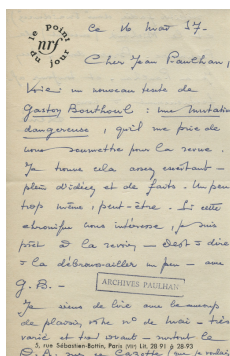 le point
du jour
nrf
ce 16 mai 57.
Cher Jean Paulhan,
Voici un nouveau texte de
Gaston Bouthoul : une mutation
dangereuse, qu'il me prie de
vous soumettre pour la revue.
Je trouve cela assez excitant -
plein d'idées et de faits. Un peu
trop même, peut-être. Si cette
chronique vous intéresse, je suis
prêt à la revoir - c'est à dire
à la débroussailler un peu - avec
G.B. -
ARCHIVES PAULHAN
Je viens de lire avec beaucoup
de plaisir, votre n° de mai - très
varié et très vivant - surtout le
5, rue Sébastien-Bottin, Paris (VII) Lit. 28 91 à 28-93
sur Cazotte que je voulais